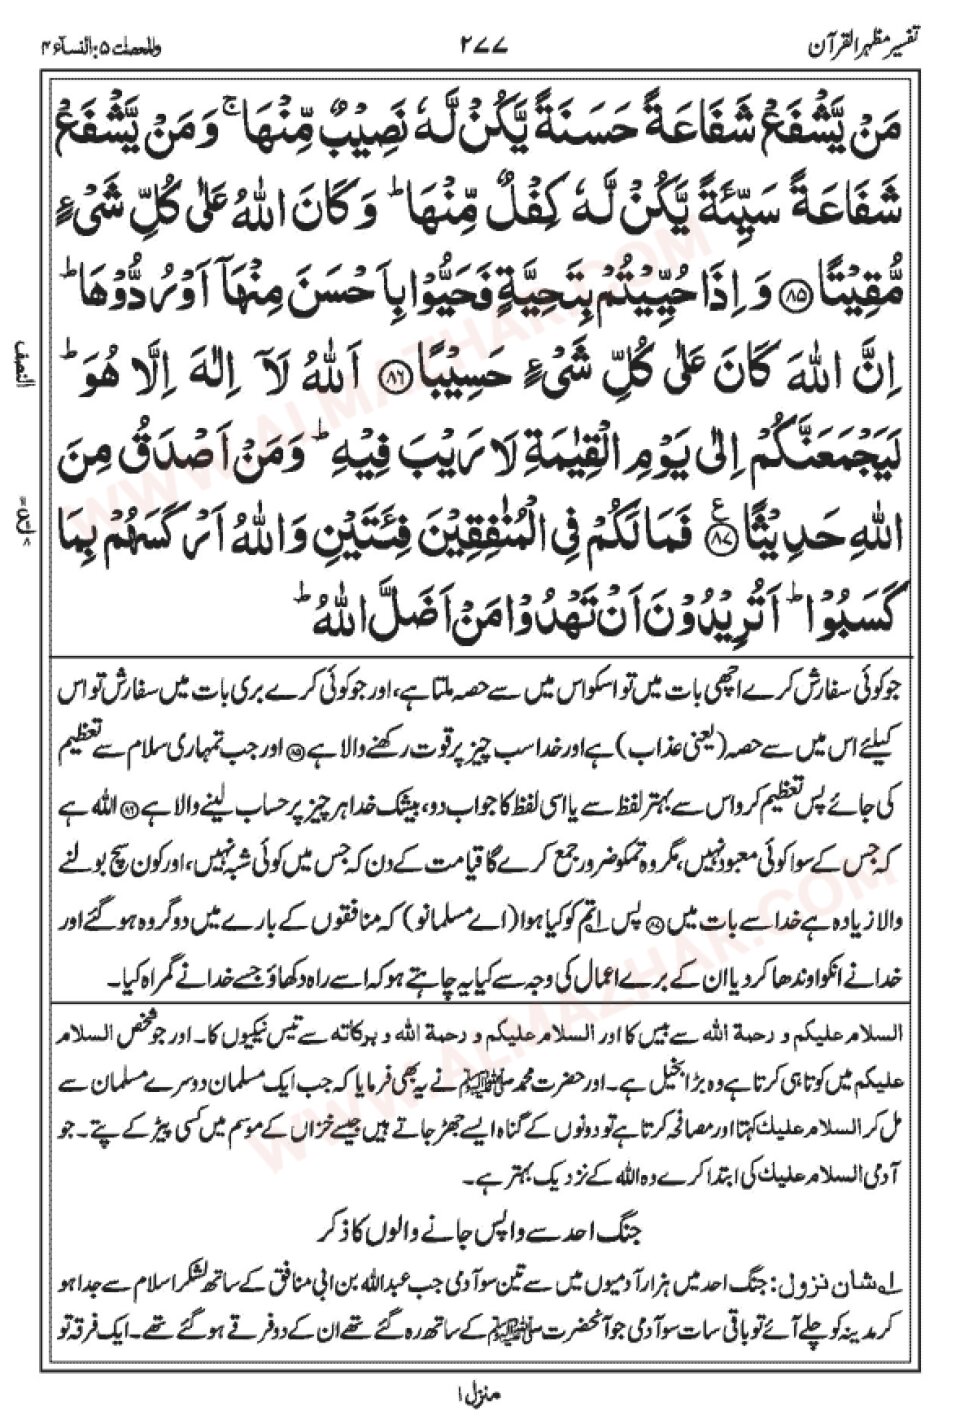 تفسیر مظہر القرآن
۲۷۷
والمحصنٰت ۵: النسآء ۴
مَنْ يَّشْفَعْ شَفَاعَةً حَسَنَةً يَّكُنْ لَّهٗ نَصِيْبٌ مِّنْهَا ۚ وَمَنْ يَّشْفَعْ
شَفَاعَةً سَيِّئَةً يَّكُنْ لَّهٗ كِفْلٌ مِّنْهَا ؕ وَكَانَ اللّٰهُ عَلٰى كُلِّ شَىْءٍ
مُّقِيْتًا ﴿۸۵﴾ وَاِذَا حُيِّيْتُمْ بِتَحِيَّةٍ فَحَيُّوْا بِاَحْسَنَ مِنْهَآ اَوْ رُدُّوْهَا ؕ
اِنَّ اللّٰهَ كَانَ عَلٰى كُلِّ شَىْءٍ حَسِيْبًا ﴿۸۶﴾ اَللّٰهُ لَآ اِلٰهَ اِلَّا هُوَ ؕ
لَيَجْمَعَنَّكُمْ اِلٰى يَوْمِ الْقِيٰمَةِ لَا رَيْبَ فِيْهِ ؕ وَمَنْ اَصْدَقُ مِنَ
اللّٰهِ حَدِيْثًا ﴿۸۷﴾ ع فَمَا لَكُمْ فِى الْمُنٰفِقِيْنَ فِئَتَيْنِ وَاللّٰهُ اَرْكَسَهُمْ بِمَا
كَسَبُوْا ؕ اَتُرِيْدُوْنَ اَنْ تَهْدُوْا مَنْ اَضَلَّ اللّٰهُ ؕ
النصف
جو کوئی سفارش کرے اچھی بات میں تو اسکو اس میں سے حصہ ملتا ہے، اور جو کوئی کرے بری بات میں سفارش تو اس
کیلئے اس میں سے حصہ (یعنی عذاب) ہے اور خدا سب چیز پر قوت رکھنے والا ہے ﴿۸۵﴾ اور جب تمہاری سلام سے تعظیم
کی جائے پس تعظیم کرو اس سے بہتر لفظ سے یا اسی لفظ کا جواب دو، بیشک خدا ہر چیز پر حساب لینے والا ہے ﴿۸۶﴾ اللہ ہے
کہ جس کے سوا کوئی معبود نہیں، مگر وہ تمکو ضرور جمع کرے گا قیامت کے دن کہ جس میں کوئی شبہ نہیں، اور کون سچ بولنے
والا زیادہ ہے خدا سے بات میں ﴿۸۷﴾ پس ۱ تم کو کیا ہوا (اے مسلمانو) کہ منافقوں کے بارے میں دو گروہ ہو گئے اور
خدا نے انکو اوندھا کر دیا ان کے برے اعمال کی وجہ سے کیا یہ چاہتے ہو کہ اسے راہ دکھاؤ جسے خدا نے گمراہ کیا۔
السلام علیکم و رحمۃ اللہ سے بیس کا اور السلام علیکم و رحمۃ اللہ و برکاتہ سے تیس نیکیوں کا۔ اور جو شخص السلام
علیکم میں کوتاہی کرتا ہے وہ بڑا بخیل ہے۔ اور حضرت محمد ﷺ نے یہ بھی فرمایا کہ جب ایک مسلمان دوسرے مسلمان سے
مل کر السلام علیک کہتا اور مصافحہ کرتا ہے تو دونوں کے گناہ ایسے جھڑ جاتے ہیں جیسے خزاں کے موسم میں کسی پیڑ کے پتے۔ جو
آدمی السلام علیک کی ابتدا کرے وہ اللہ کے نزدیک بہتر ہے۔
جنگ احد سے واپس جانے والوں کا ذکر
۱ شان نزول: جنگ احد میں ہزار آدمیوں میں سے تین سو آدمی جب عبداللہ بن ابی منافق کے ساتھ لشکر اسلام سے جدا ہو
کر مدینہ کو چلے آئے تو باقی سات سو آدمی جو آنحضرت ﷺ کے ساتھ رہ گئے تھے ان کے دو فرقے ہو گئے تھے۔ ایک فرقہ تو
منزل ۱
WWW.ALMAZHAR.COM
WWW.ALMAZHAR.COM